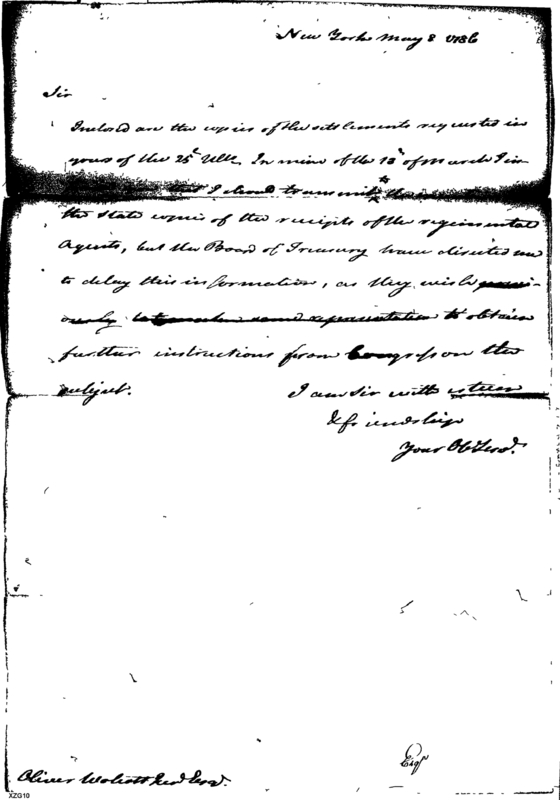 New York May 8 1786
Sir
Inclosed are the copies of the settlements requested in
yours of the 25th Ulto. In mine of the 13th of March I in-
that I should transmit to the
the State copies of the receipts of the regimental
Agents, but the Board of Treasury have directed me
to delay this information, as they wish previ-
ously to make some representation to obtain
further instructions from Congress on the
subject. I am Sir with esteem
& friendship
Your Ob Serv.
Esqr
Oliver Wolcott Jun Esqr.
XZG10